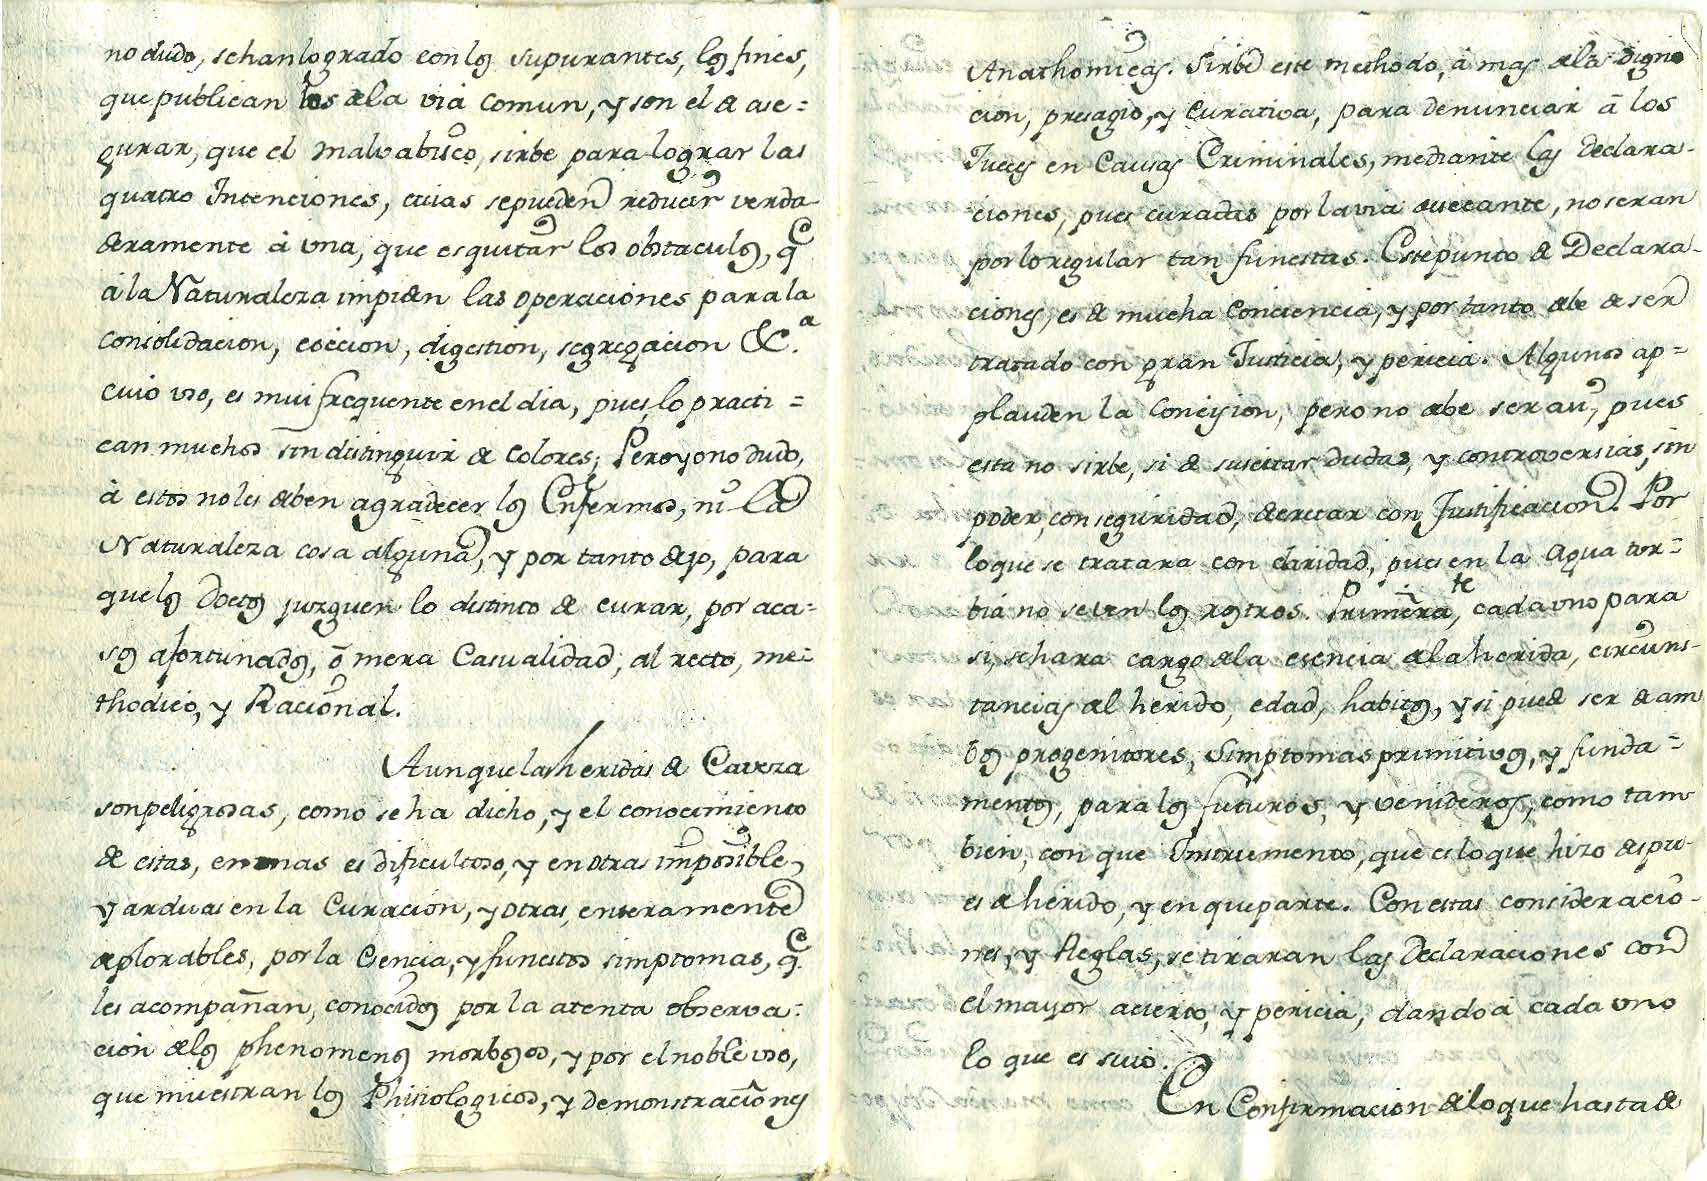 no dudo, se han logrado con los supurantes, los fines,
que publican los de la via comun, y son el de ase=
gurar, que el malvabisco, sirbe para lograr las
quatro Intenciones, cuias se pueden reducir verda
deramente â una, que es quitar los obstaculos, q.e
â la Naturaleza impiden las operaciones para la
consolidacion, cocion, digestion, segregacion &c.a
cuio uso, es mui frequente en el dia, pues lo practi=
can muchos sin distinguir de colores; Pero yo no dudo,
â estos no les deben agradecer los Enfermos, ni la
Naturaleza cosa alguna, y por tanto dejo, para
que los Doctos juzguen lo distinto de curar, por aca=
sos afortunados, ô mera Casualidad, al recto, me=
thodico, y Racional.
Aunque las heridas de Caveza
son peligrosas, como se ha dicho, y el conocimiento
de estas, en unas es dificultoso, y en otras imposible,
y arduas en la Curacion, y otras enteramente
deplorables, por la Esencia, y funestos simptomas, q.e
les acompañan, conocidos por la atenta observa=
cion de los phenomenos morbosos, y por el noble uso,
que muestran los Phisiologicos, y demonstraciones
Anathomicas. Sirbe este methodo, â mas de la Digno
cion, presagio, y Curativa, para denunciar â los
Jueces en Causas Criminales, mediante las declara-
ciones, pues curadas por la via disecante, no seran
por lo regular tan funestas. Este punto de Declara-
ciones, es de mucha conciencia, y por tanto debe de ser
tratado con gran Justicia, y pericia. Algunos ap=
plauden la concision, pero no debe ser asi, pues
esta no sirbe, si de suscitar dudas, y controversias, sin
poder, con seguridad, decretar con Justificacion. Por
lo que se tratara con claridad, pues en la agua tur=
bia no se ven los rostros. Primera.te, cada uno para
si, se hara cargo de la esencia de la herida, circuns-
tancias del herido, edad, habitos, y si puede ser de am
bos progenitores, Simptomas primitivos, y funda=
mentos, para los futuros, y venideros, como tam
bien, con que Instrumento, que es lo que hizo despu-
es de herido, y en que parte. Con estas consideracio-
nes, y Reglas, se tiraran las Declaraciones con
el mayor acierto, y pericia, dando â cada uno
lo que es suio.
En Confirmacion de lo que hasta de